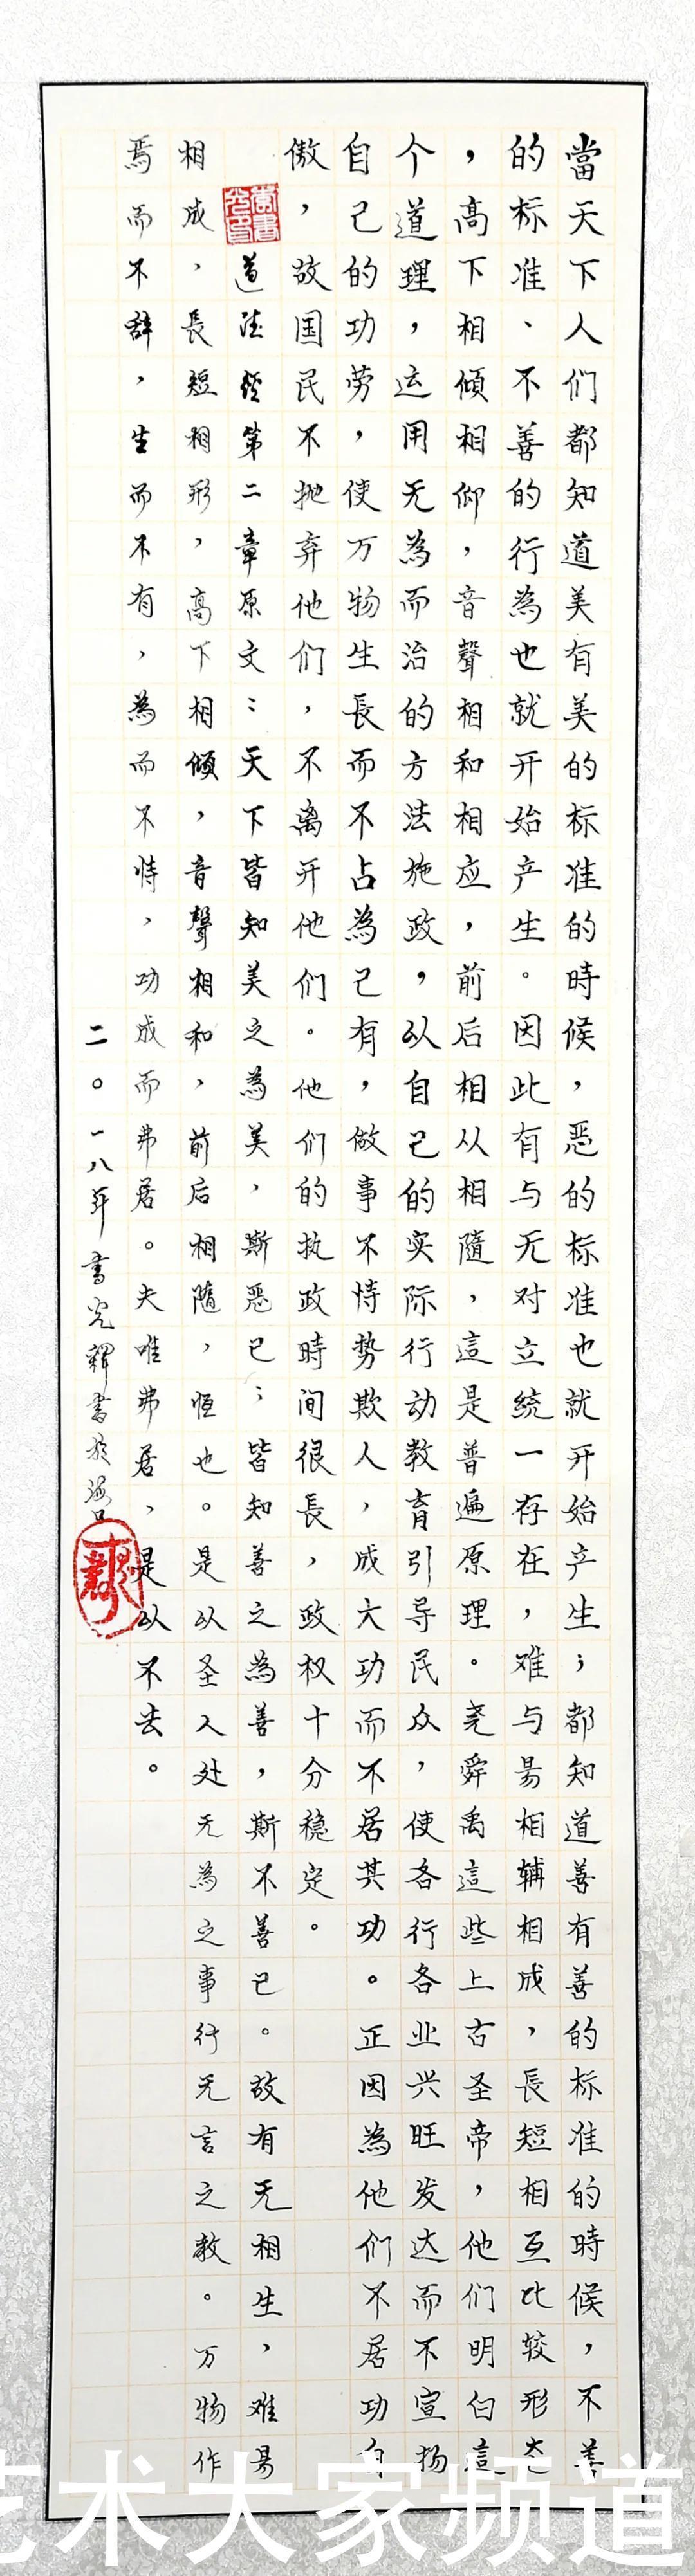 當天下人们都知道美有美的标准的時候，恶的标准也就开始产生；都知道善有善的标准的時候，不善
的标准、不善的行為也就开始产生。因此有与无对立统一存在，难与易相辅相成，長短相互比较形态
，高下相傾相仰，音聲相和相应，前后相从相隨，這是普遍原理。尧舜禹這些上古圣帝，他们明白這
个道理，运用无為而治的方法施政，以自己的实际行动教育引导民众，使各行各业兴旺发达而不宣扬
自己的功劳，使万物生長而不占為己有，做事不恃势欺人，成大功而不居其功。正因為他们不居功自
傲，故国民不抛弃他们，不离开他们。他们的执政時间很長，政权十分稳定。
道德經第二章原文：天下皆知美之為美，斯恶已；皆知善之為善，斯不善已。故有无相生，难易
相成，長短相形，高下相傾，音聲相和，前后相隨，恒也。是以圣人处无為之事行无言之教。万物作
焉而不辞，生而不有，為而不恃，功成而弗居。夫唯弗居，是以不去。
二〇一八年書光輝書於海口
艺术大家频道